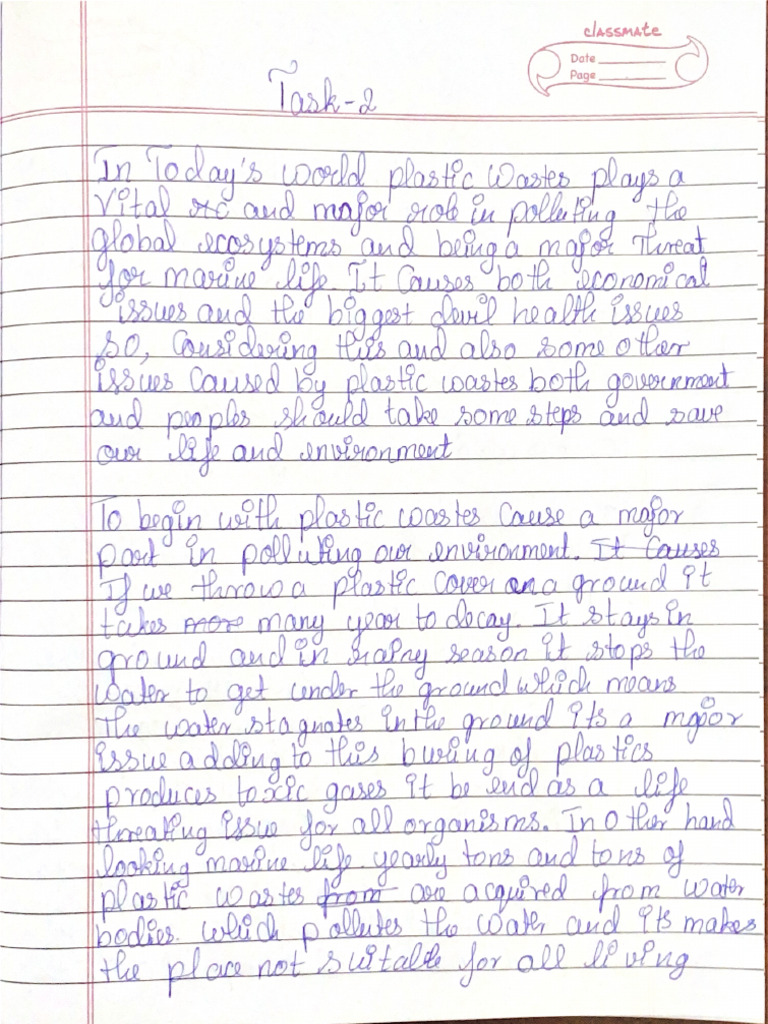 classmate
Date
Page
Task-2
In Today's world plastic wastes plays a
vital and major role in polluting the
global ecosystems and being a major threat
for marine life. It causes both economical
issues and the biggest devil health issues
so, Considering this and also some other
issues caused by plastic wastes both government
and peoples should take some steps and save
our life and environment
To begin with plastic wastes cause a major
part in polluting our environment. It causes
If we throw a plastic cover on a ground it
takes more many year to decay. It stays in
ground and in rainy season it stops the
water to get under the ground which means
the water stagnates in the ground its a major
issue adding to this buring of plastics
produces toxic gases it be end as a life
threating issue for all organisms. In other hand
looking marine life yearly tons and tons of
plastic wastes from are acquired from water
bodies. which pollutes the water and its makes
the place not suitable for all living